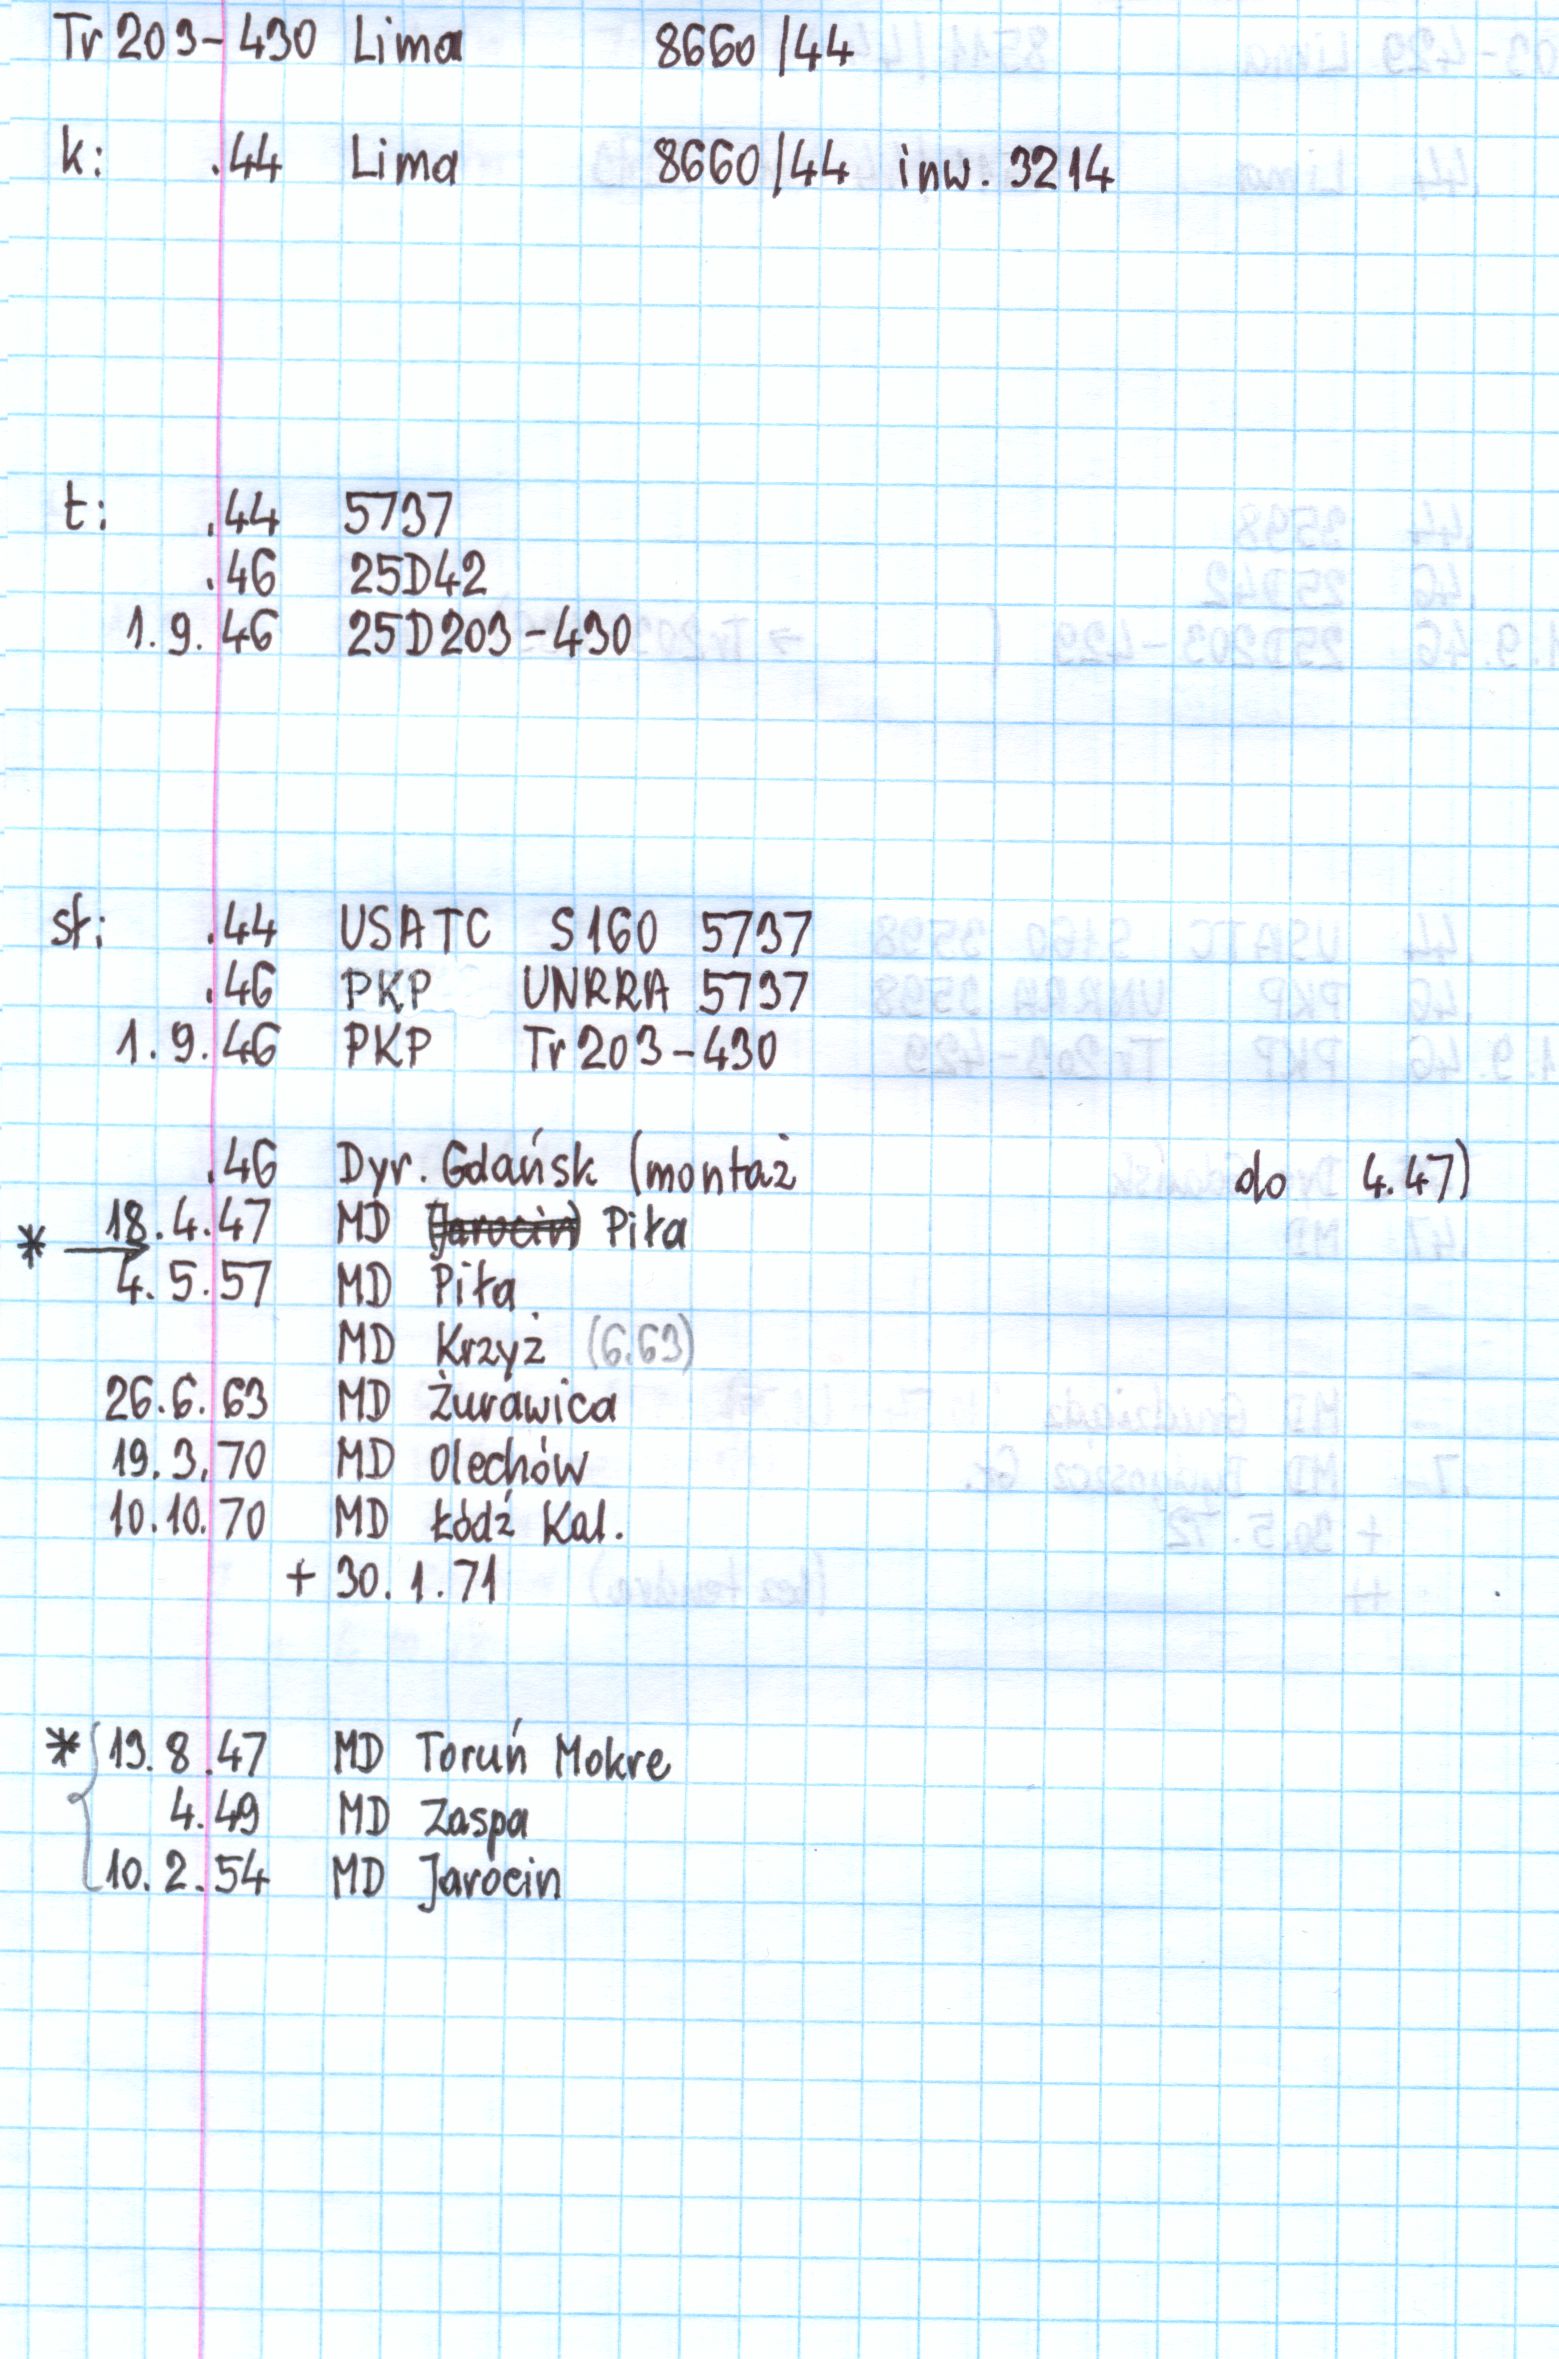 Tr 203-430 Lima 8660/44
k: .44 Lima 8660/44 inw. 3214
t: .44 5737
.46 25D42
1.9.46 25D203-430
sł: .44 USATC S160 5737
.46 PKP UNRRA 5737
1.9.46 PKP Tr203-430
.46 Dyr. Gdańsk (montaż do 4.47)
18.4.47 MD (Jarocin) Piła
* →
4.5.57 MD Piła
MD Krzyż (6.63)
26.6.63 MD Żurawica
19.3.70 MD Olechów
10.10.70 MD Łódź Kal.
+ 30.1.71
* 19.8.47 MD Toruń Mokre
4.49 MD Zaspa
10.2.54 MD Jarocin